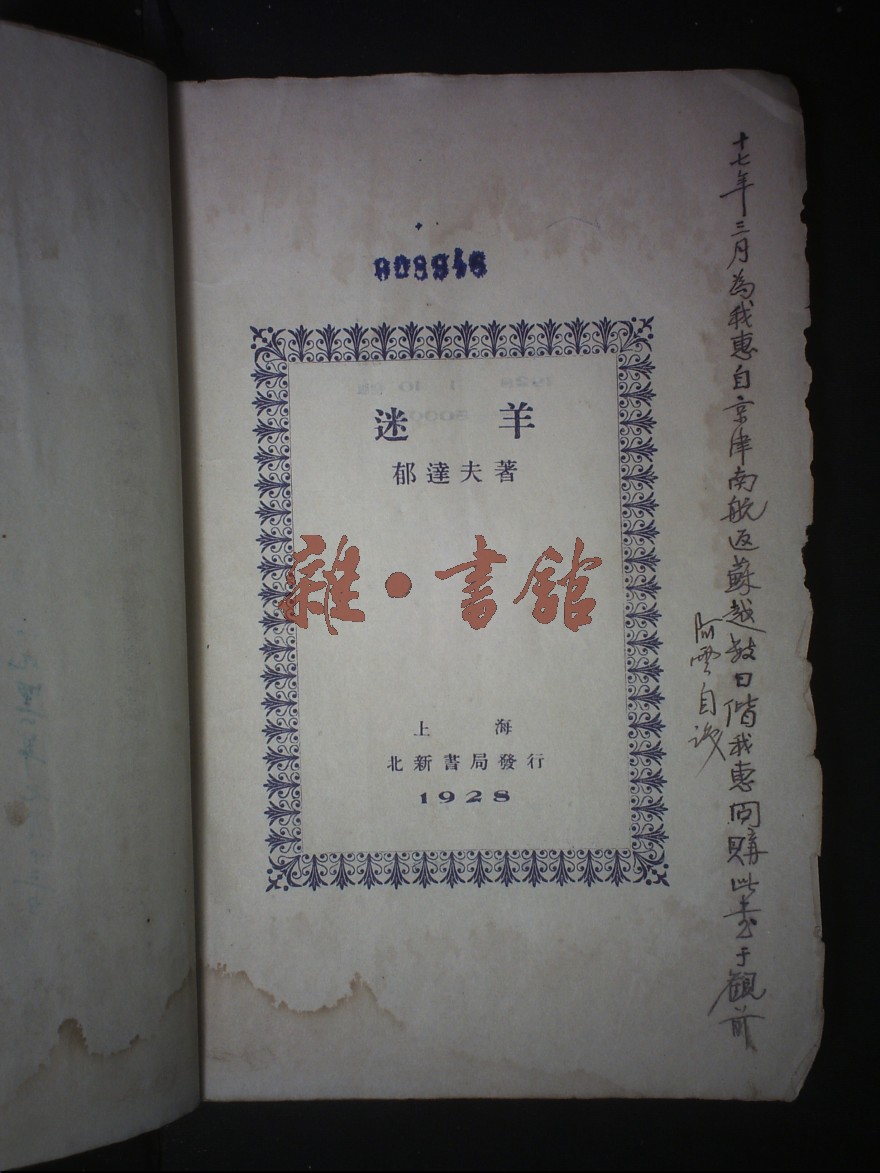 迷羊
郁達夫著
雜·書館
上海
北新書局發行
1928
十七年三月為我惠自京津南航返蘇越數日偕我惠同購此書于觀前
阿雲自識